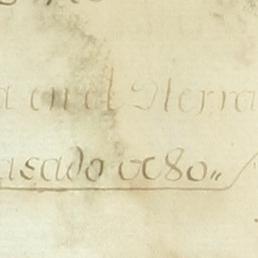 a en el Herra
asado de 80,,